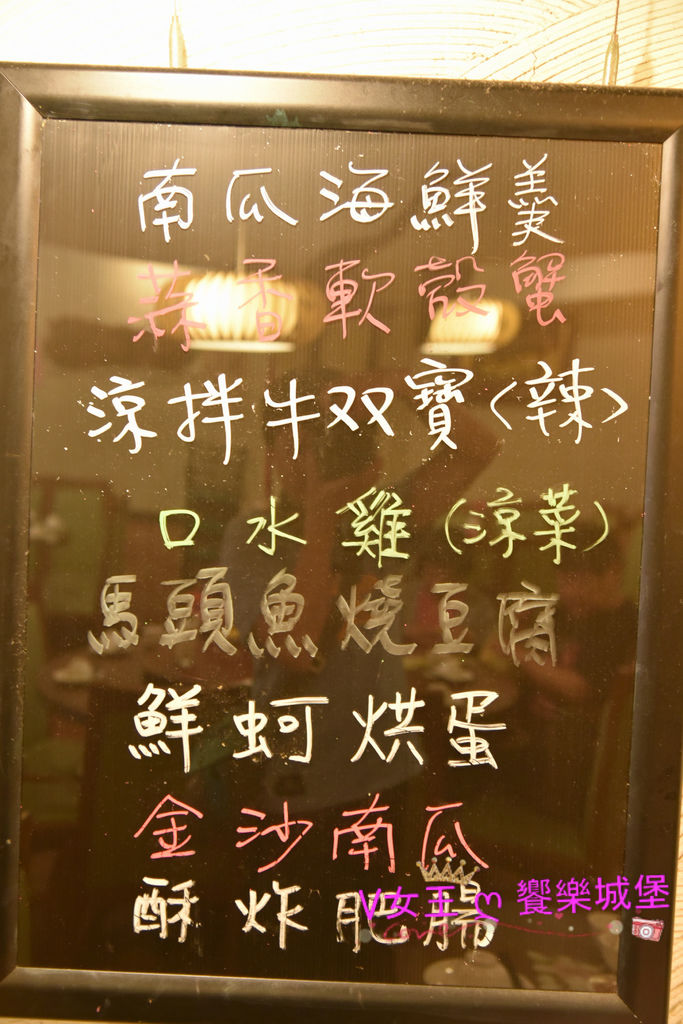 南瓜海鮮羹
蒜香軟殼蟹
涼拌牛双寶<辣>
口水雞(涼菜)
馬頭魚燒豆腐
鮮蚵烘蛋
金沙南瓜
酥炸肥腸
V女王m 饗樂城堡